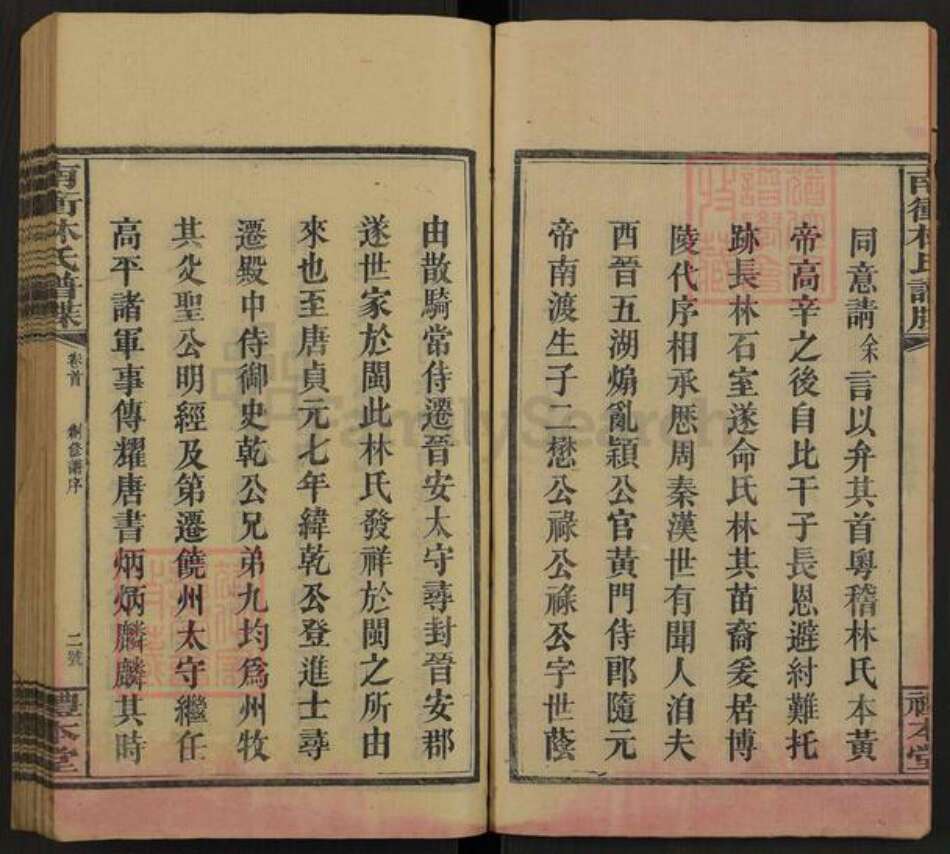 同意請余言以弁其首粵稽林氏本黃
帝高辛之後自比干子長恩避紂難托
跡長林石室遂命氏林其苗裔爰居博
陵代序相承厯周秦漢世有聞人洎夫
西晉五湖煽亂穎公官黃門侍郎隨元
帝南渡生子二懋公祿公祿公字世蔭
由散騎常侍遷晉安太守尋封晉安郡
遂世家於閩此林氏發祥於閩之所由
來也至唐貞元七年緯乾公登進士尋
遷殿中侍御史乾公兄弟九均爲州牧
其父聖公明經及第遷饒州太守繼任
高平諸軍事傳耀唐書炳炳麟麟其時
南衝林氏譜牒
卷首
創修譜序
二號
禮本堂
FamilySearch